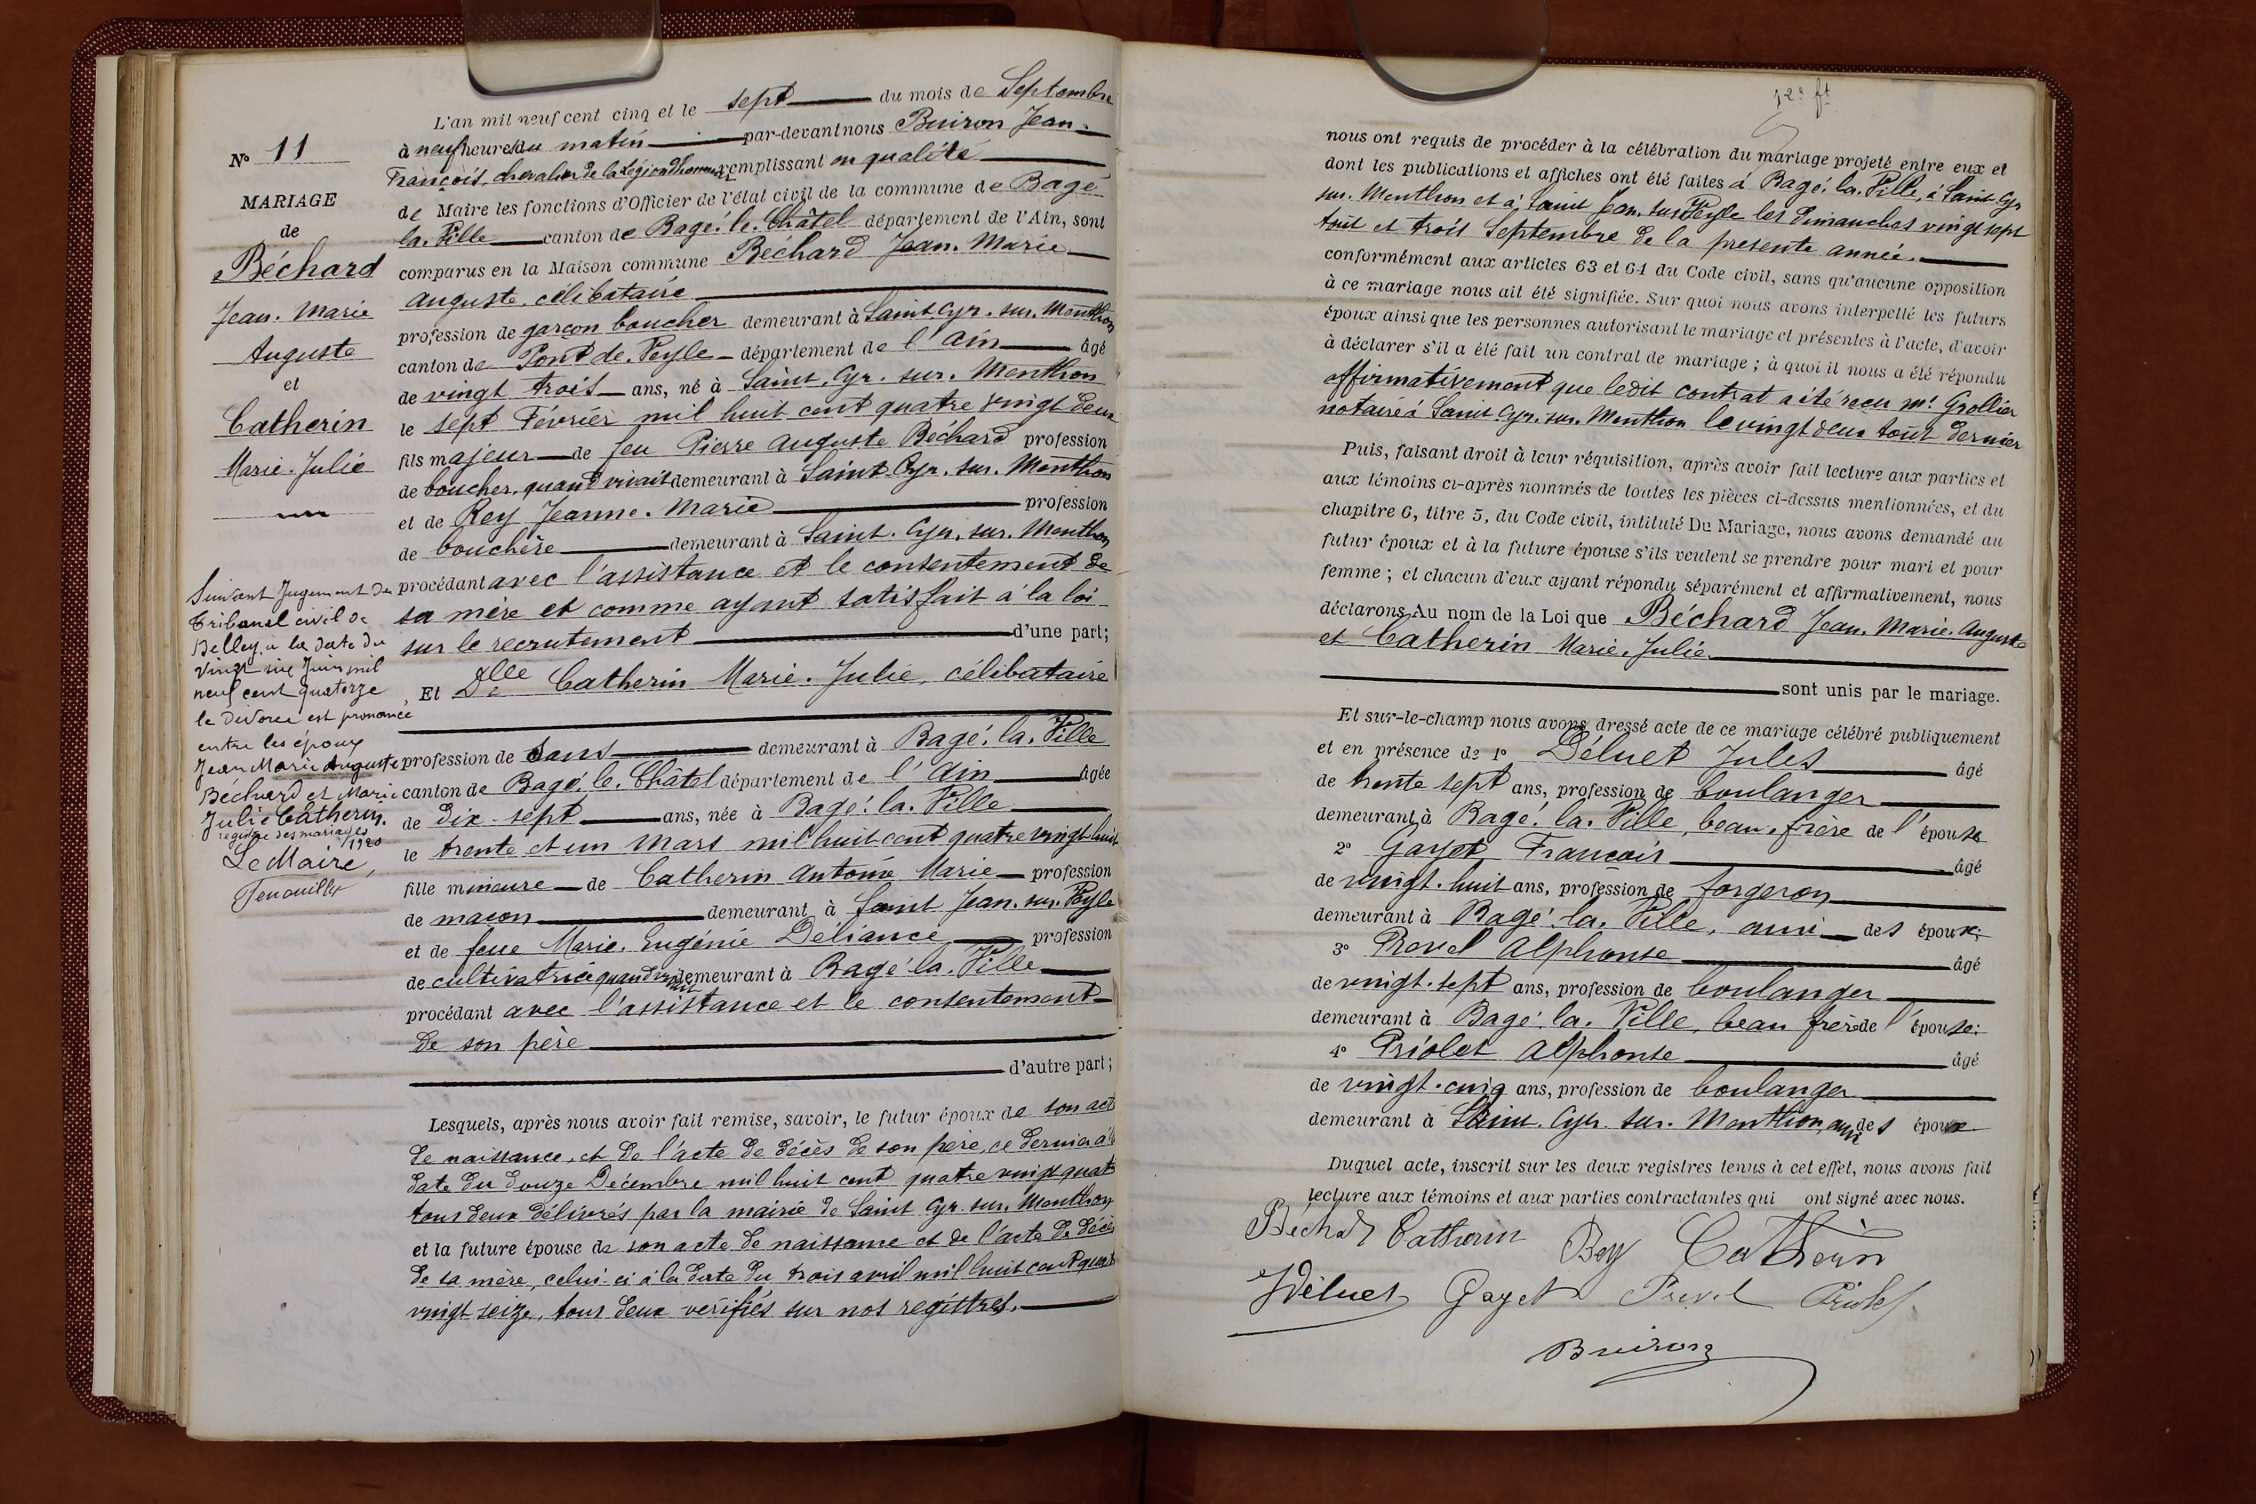 N° 11
MARIAGE
de
Béchard
Jean. Marie
Auguste
et
Catherin
Marie. Julie
Suivant Jugement du
Tribunal civil de
Belley, à la date du
vingt six Juin mil
neuf cent quatorze
le divorce est prononcé
entre les époux
Jean Marie Auguste
Bechard et Marie
Julie Catherin.
registre des mariages
1920
Le Maire,
L'an mil neuf cent cinq et le sept du mois de Septembre
à neuf heures du matin par-devant nous Buiron Jean-
François, chevalier de la Légion d'honneur remplissant en qualité
de Maire les fonctions d'Officier de l'état civil de la commune de Bagé-
la. Ville canton de Bagé. le. Châtel département de l'Ain, sont
comparus en la Maison commune Béchard Jean. Marie
Auguste, célibataire
profession de garçon boucher demeurant à Saint Cyr. sur. Menthon
canton de Pont de. Veyle département de l'Ain âgé
de vingt trois ans, né à Saint. Cyr. sur. Menthon
le sept Février mil huit cent quatre vingt deux
fils majeur de feu Pierre Auguste Béchard profession
de boucher, quand vivait demeurant à Saint Cyr. sur. Menthon
et de Rey Jeanne. Marie profession
de bouchère demeurant à Saint. Cyr. sur. Menthon
procédant avec l'assistance et le consentement de
sa mère et comme ayant satisfait à la loi
sur le recrutement d'une part;
Et Dlle Catherin Marie. Julie, célibataire
profession de sans demeurant à Bagé. la. Ville
canton de Bagé. le. Châtel département de l'Ain âgée
de dix-sept ans, née à Bagé. la. Ville
le trente et un Mars mil huit cent quatre vingt huit
fille mineure de Catherin Antoine Marie profession
de maçon demeurant à Saint Jean. sur. Veyle
et de feue Marie. Eugénie Déliance profession
de cultivatrice quand vivait demeurant à Bagé. la. Ville
procédant avec l'assistance et le consentement
de son père
d'autre part;
Lesquels, après nous avoir fait remise, savoir, le futur époux de son acte
de naissance, et de l'acte de décès de son père, ce dernier à la
date du douze Décembre mil huit cent quatre vingt quatre
tous deux délivrés par la mairie de Saint Cyr. sur. Menthon
et la future épouse de son acte de naissance et de l'acte de décès
de sa mère, celui-ci à la date du trois avril mil huit cent quatre
vingt seize, tous deux vérifiés sur nos registres.
12e ft
nous ont requis de procéder à la célébration du mariage projeté entre eux et
dont les publications et affiches ont été faites à Bagé. la. Ville, à Saint Cyr
sur. Menthon et à Saint Jean. sur Veyle les dimanches vingt sept
août et trois Septembre de la presente année.
conformément aux articles 63 et 64 du Code civil, sans qu'aucune opposition
à ce mariage nous ait été signifiée. Sur quoi nous avons interpellé les futurs
époux ainsi que les personnes autorisant le mariage et présentes à l'acte, d'avoir
à déclarer s'il a été fait un contrat de mariage; à quoi il nous a été répondu
affirmativement que ledit contrat a été reçu Me Grollier
notaire à Saint Cyr. sur. Menthon le vingt deux août dernier
Puis, faisant droit à leur réquisition, après avoir fait lecture aux parties et
aux témoins ci-après nommés de toutes les pièces ci-dessus mentionnées, et du
chapitre 6, titre 5, du Code civil, intitulé Du Mariage, nous avons demandé au
futur époux et à la future épouse s'ils veulent se prendre pour mari et pour
femme; et chacun d'eux ayant répondu séparément et affirmativement, nous
déclarons Au nom de la Loi que Béchard Jean. Marie. Auguste
et Catherin Marie. Julie
sont unis par le mariage.
Et sur-le-champ nous avons dressé acte de ce mariage célébré publiquement
et en présence de 1° Déluet Jules âgé
de trente sept ans, profession de boulanger
demeurant à Bagé. la. Ville, beau. frère de l'épouse
2° Gayet François âgé
de vingt. huit ans, profession de forgeron
demeurant à Bagé. la. Ville, ami des époux;
3° Revel Alphonse âgé
de vingt. sept ans, profession de boulanger
demeurant à Bagé. la. Ville, beau frère de l'épouse;
4° Priolet Alphonse âgé
de vingt. cinq ans, profession de boulanger
demeurant à Saint. Cyr. sur. Menthon, ami des époux
Duquel acte, inscrit sur les deux registres tenus à cet effet, nous avons fait
lecture aux témoins et aux parties contractantes qui ont signé avec nous.
Béchard Catherin Rey Catherin
J Déluet Gayet Revel Priolet
Buiron